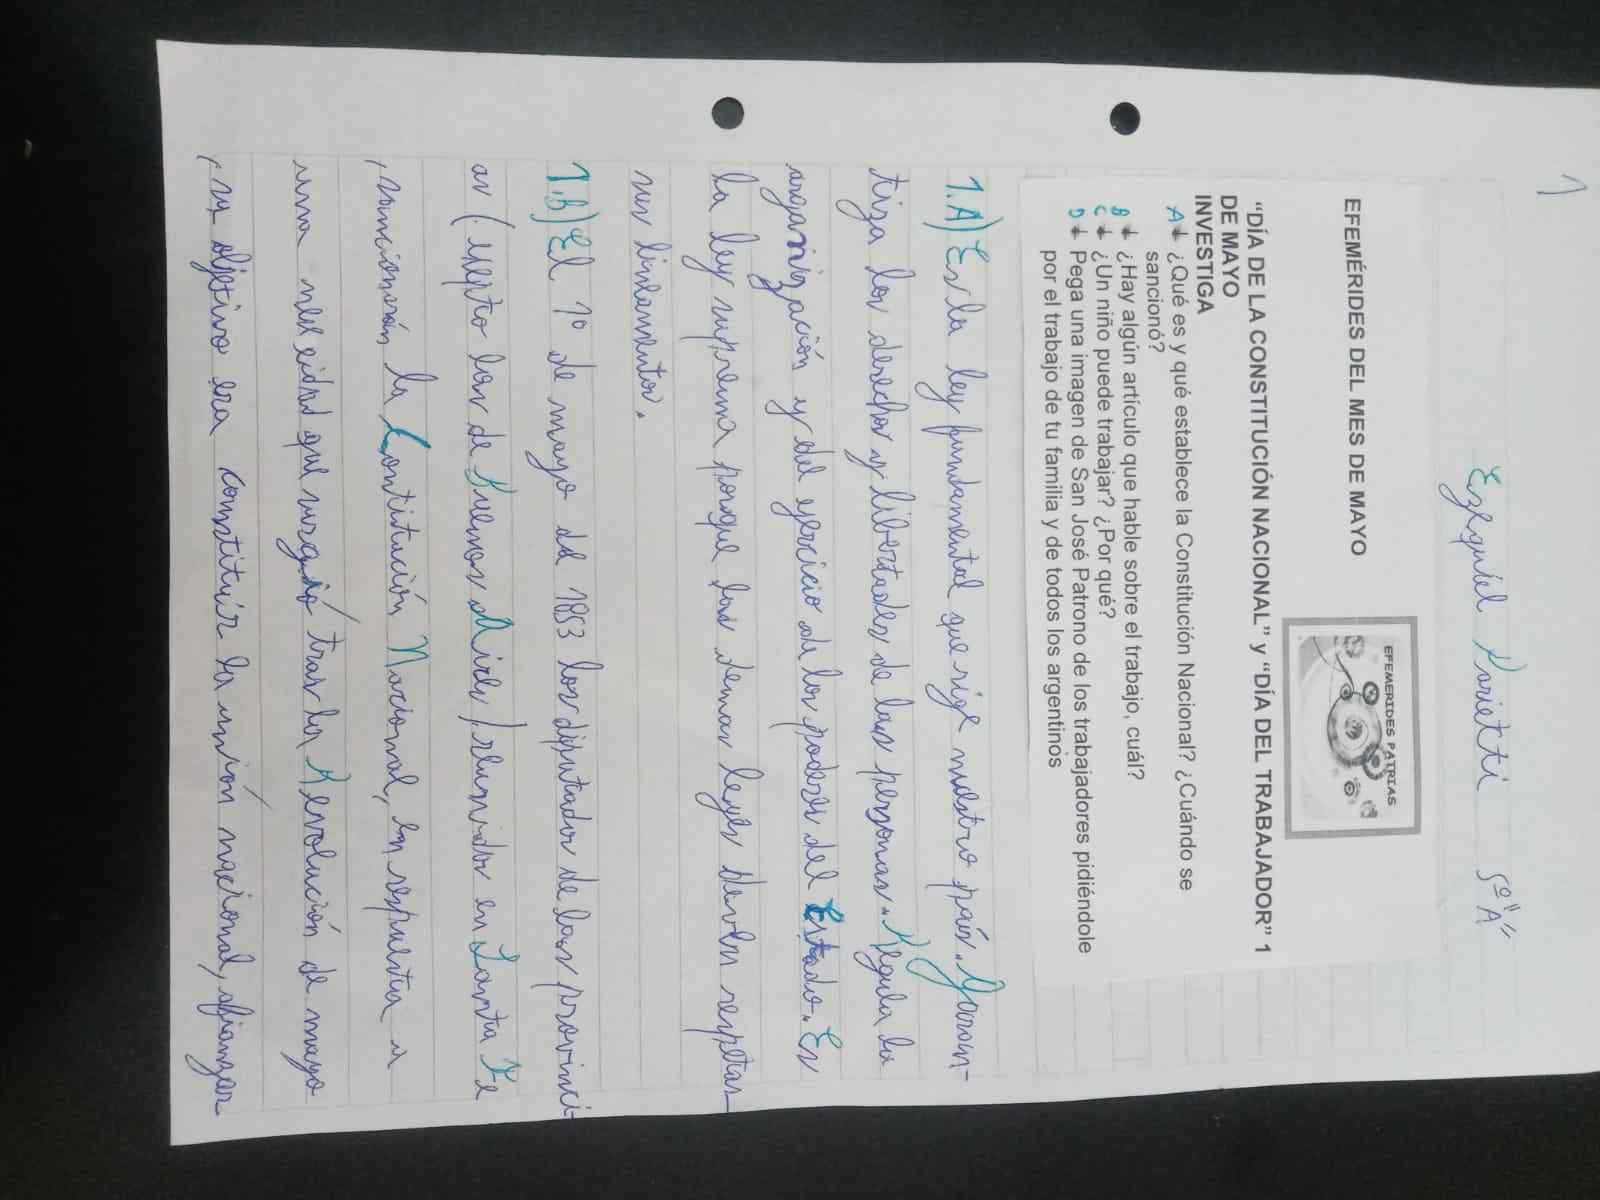 1
Ezequiel Parietti 5º "A"
EFEMÉRIDES DEL MES DE MAYO
EFEMERIDES PATRIAS
"DÍA DE LA CONSTITUCIÓN NACIONAL" y "DÍA DEL TRABAJADOR" 1
DE MAYO
INVESTIGA
A ¿Qué es y qué establece la Constitución Nacional? ¿Cuándo se
sancionó?
B ¿Hay algún artículo que hable sobre el trabajo, cuál?
C ¿Un niño puede trabajar? ¿Por qué?
D Pega una imagen de San José Patrono de los trabajadores pidiéndole
por el trabajo de tu familia y de todos los argentinos
1.A) Es la ley fundamental que rige nuestro país. Garan-
tiza los derechos y libertades de las personas. Regula la
organización y del ejercicio de los poderes del Estado. Es
la ley suprema porque las demas leyes deven respetar
sus lineamentos.
1.B) El 1º de mayo de 1853 los diputados de las provinci-
as (exepto las de Buenos Aires) reunidos en Santa Fe
, sancionarón la Contitución Nacional, en respuesta a
una nesesidad que surgió tras la Revolución de mayo
, su objetivo era constituir la unión nacional, afianzar